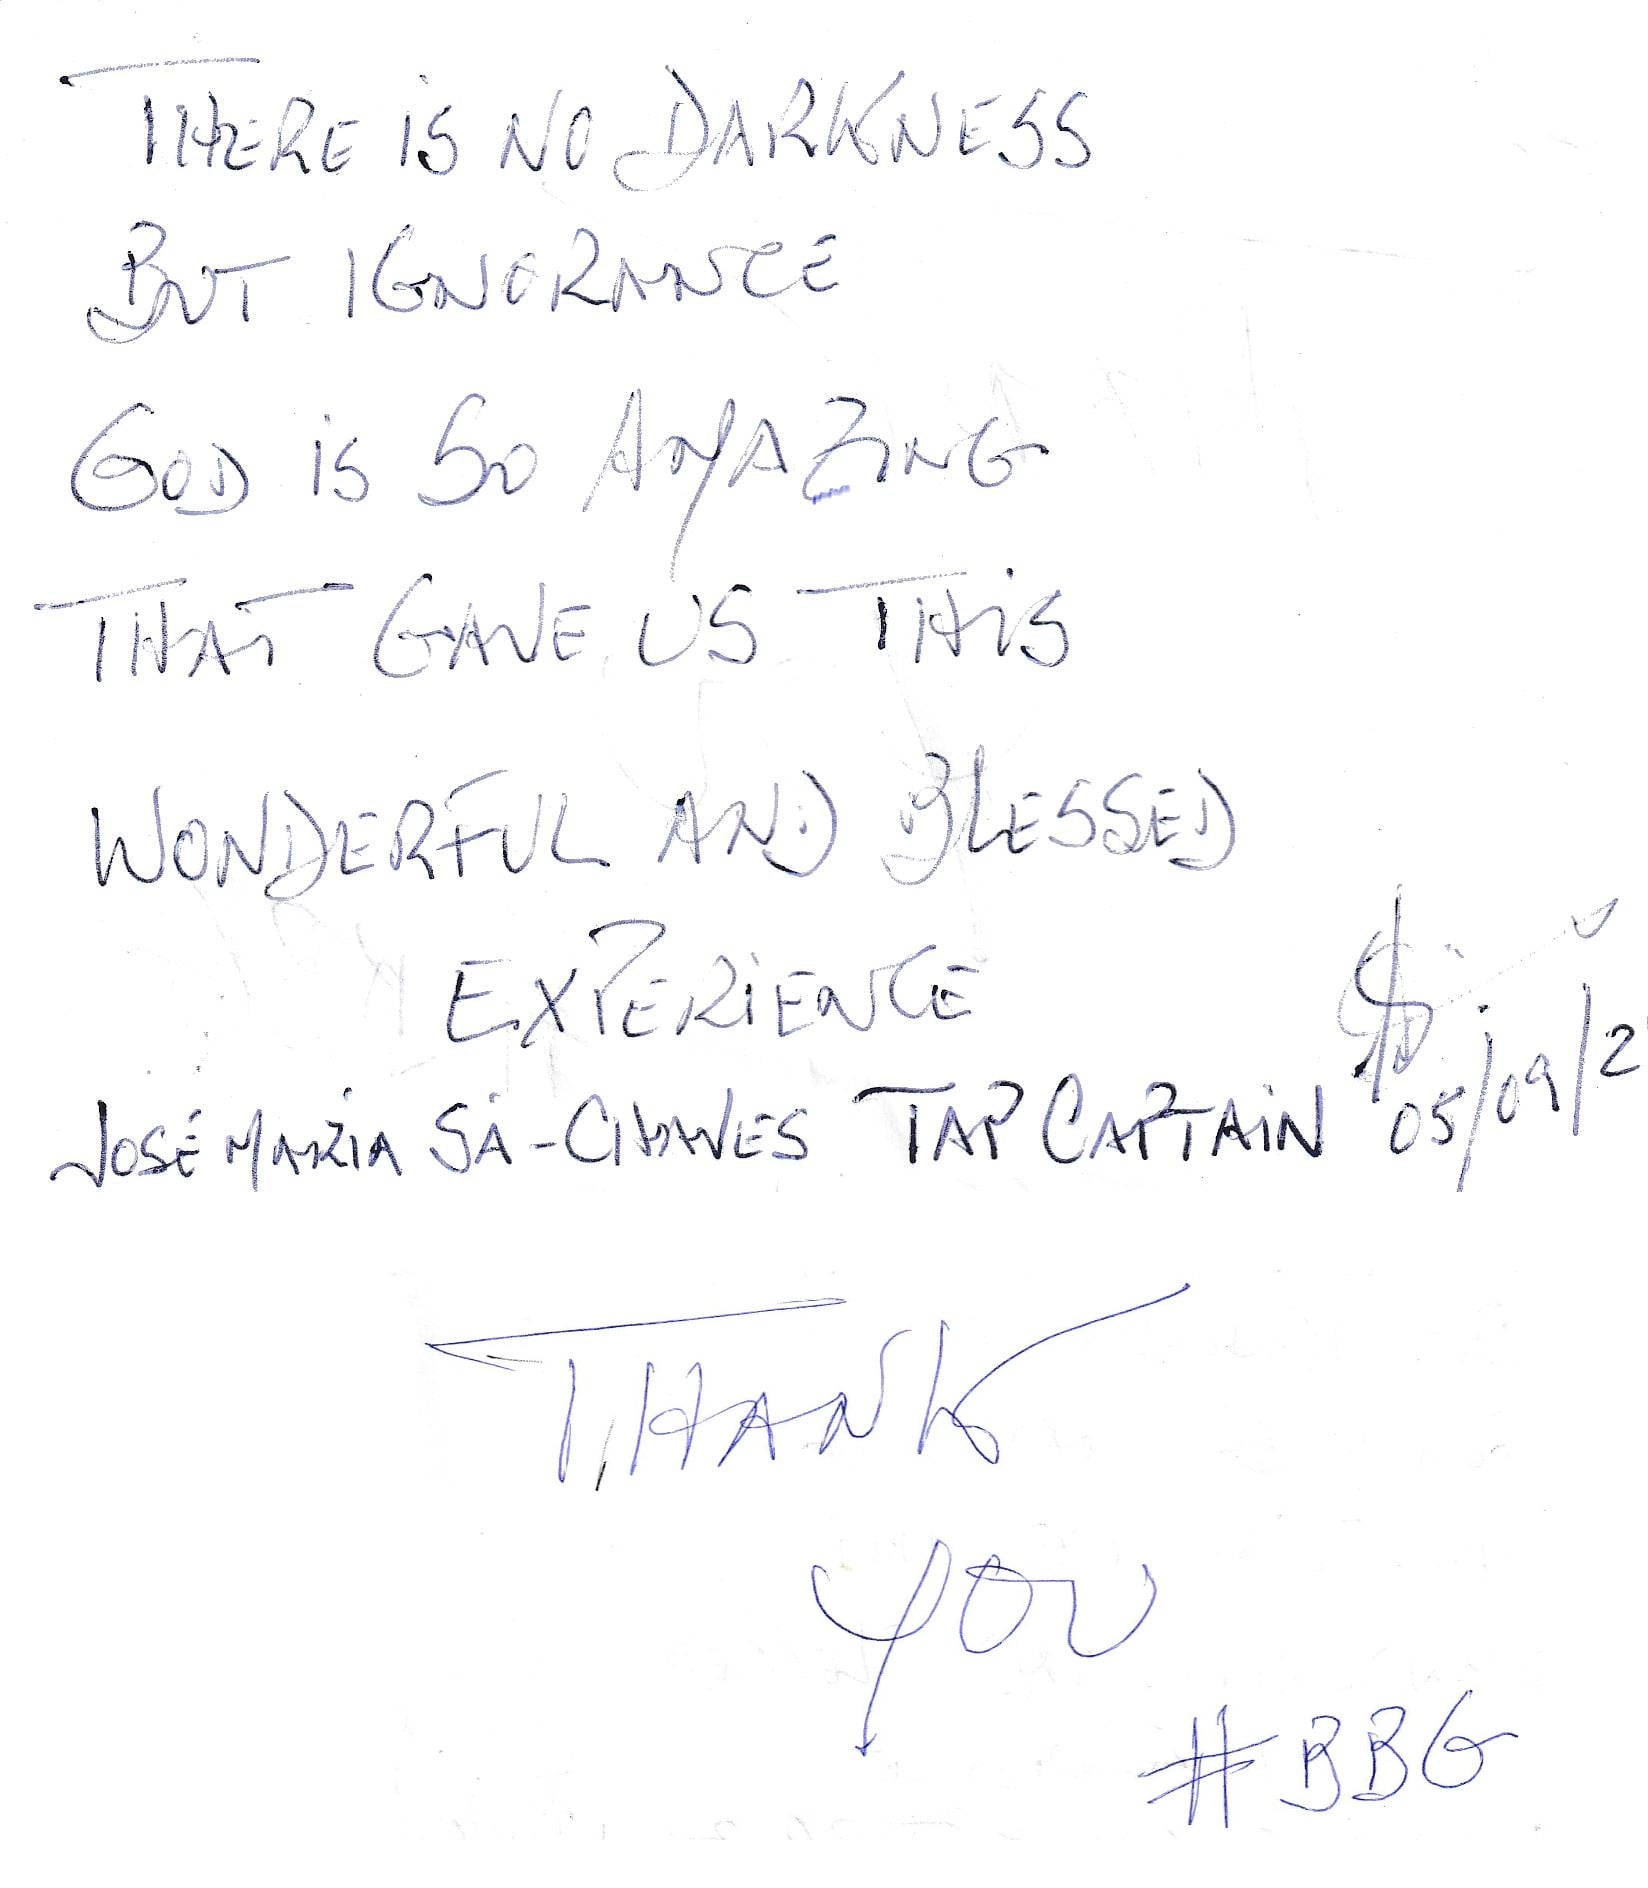 THERE IS NO DARKNESS
BUT IGNORANCE
GOD IS SO AMAZING
THAT GAVE US THIS
WONDERFUL AND BLESSED
EXPERIENCE
JOSÉ MARIA SÁ-CHAVES TAP CAPTAIN 05/09/2
THANK
YOU
#BBG